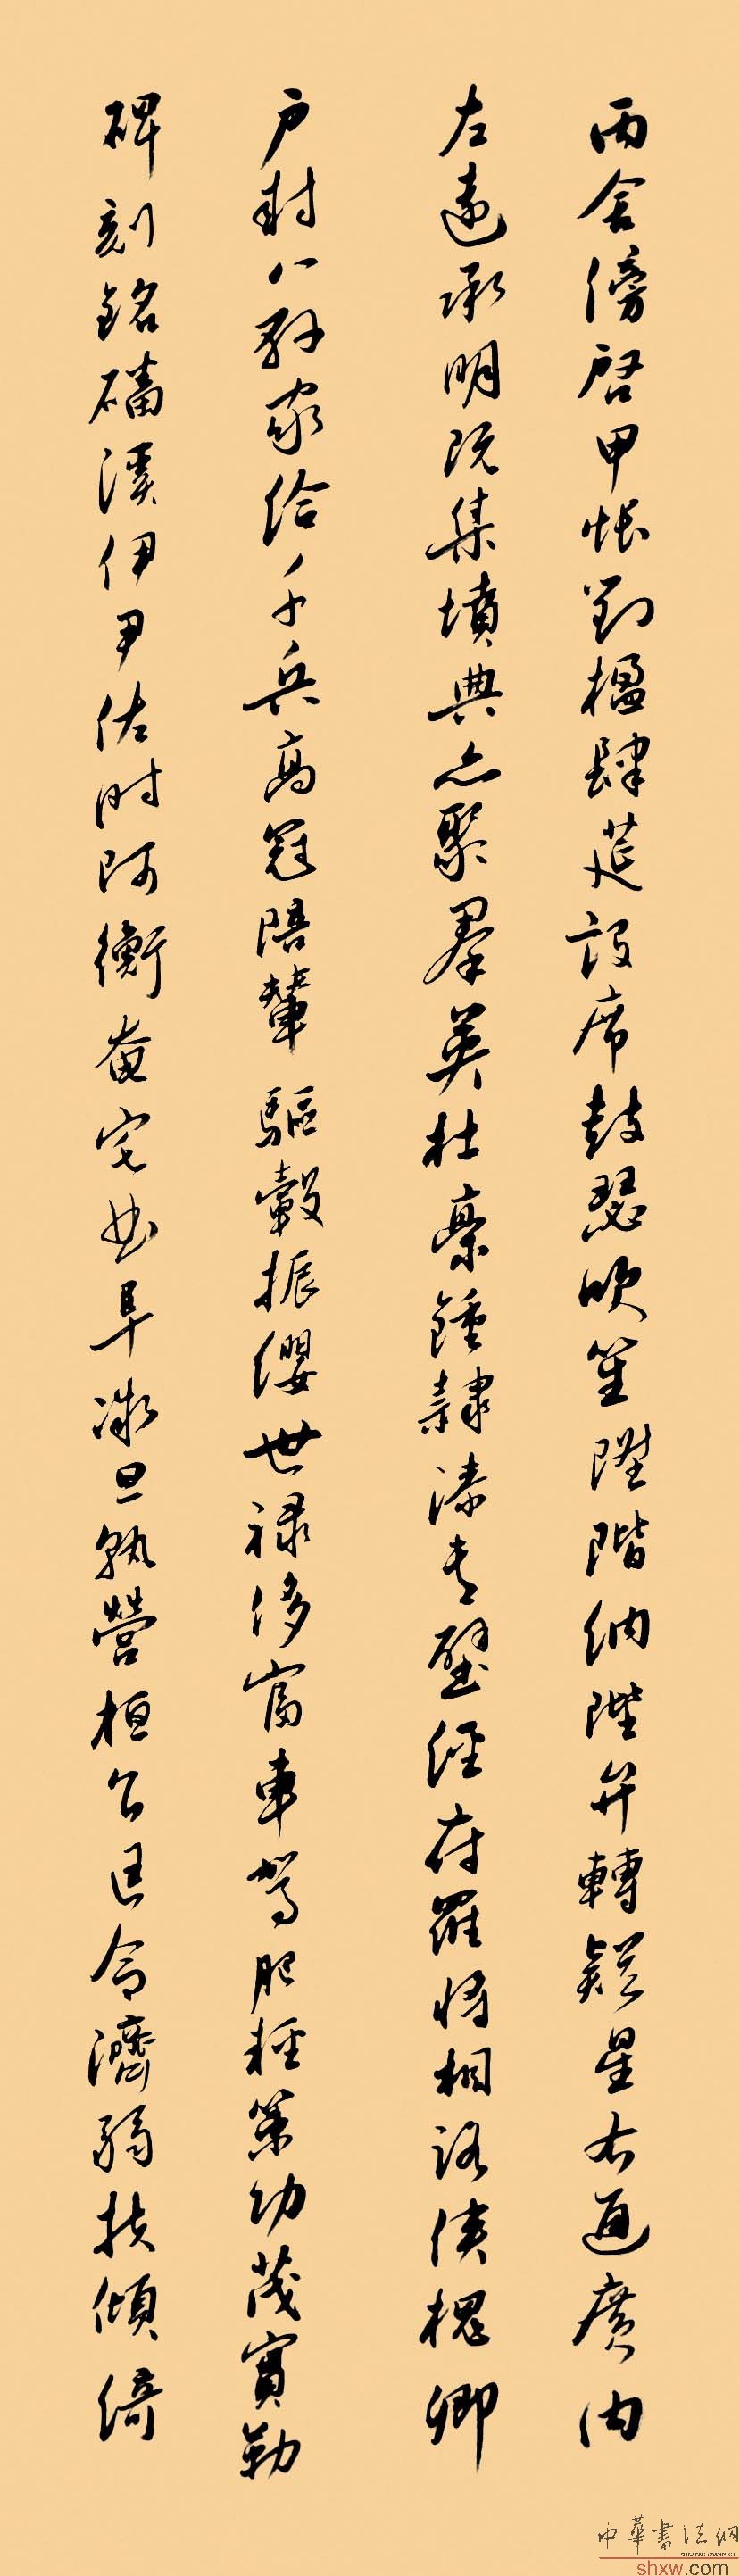 丙舍傍启甲帐對楹肆莚設席鼓瑟吹笙陞階納陛弁轉疑星右通廣内
左達承明既集墳典亦聚羣英杜稾鍾隸漆書壁經府羅将相路俠槐卿
户封八縣家給千兵高冠陪輦驅轂振纓世禄侈富車駕肥輕策功茂實勒
碑刻銘磻溪伊尹佐时阿衡奄宅曲阜微旦孰營桓公匡合濟弱扶傾綺
中華書法網
shxw.com